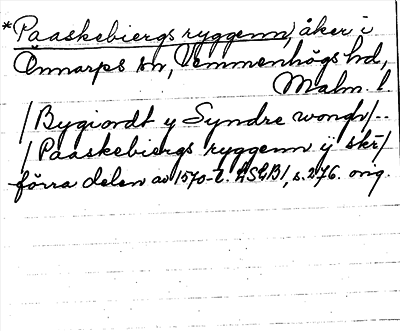 *Paaskebiergs ryggenn, åker i
Önnarps sn, Vemmenhögs hd,
Malm. l
/Bygiordt y Syndre wongh/--
/Paaskebiergs ryggenn ÿ skr/
förra delen av 1570-t. LSGB1, s.276. orig.